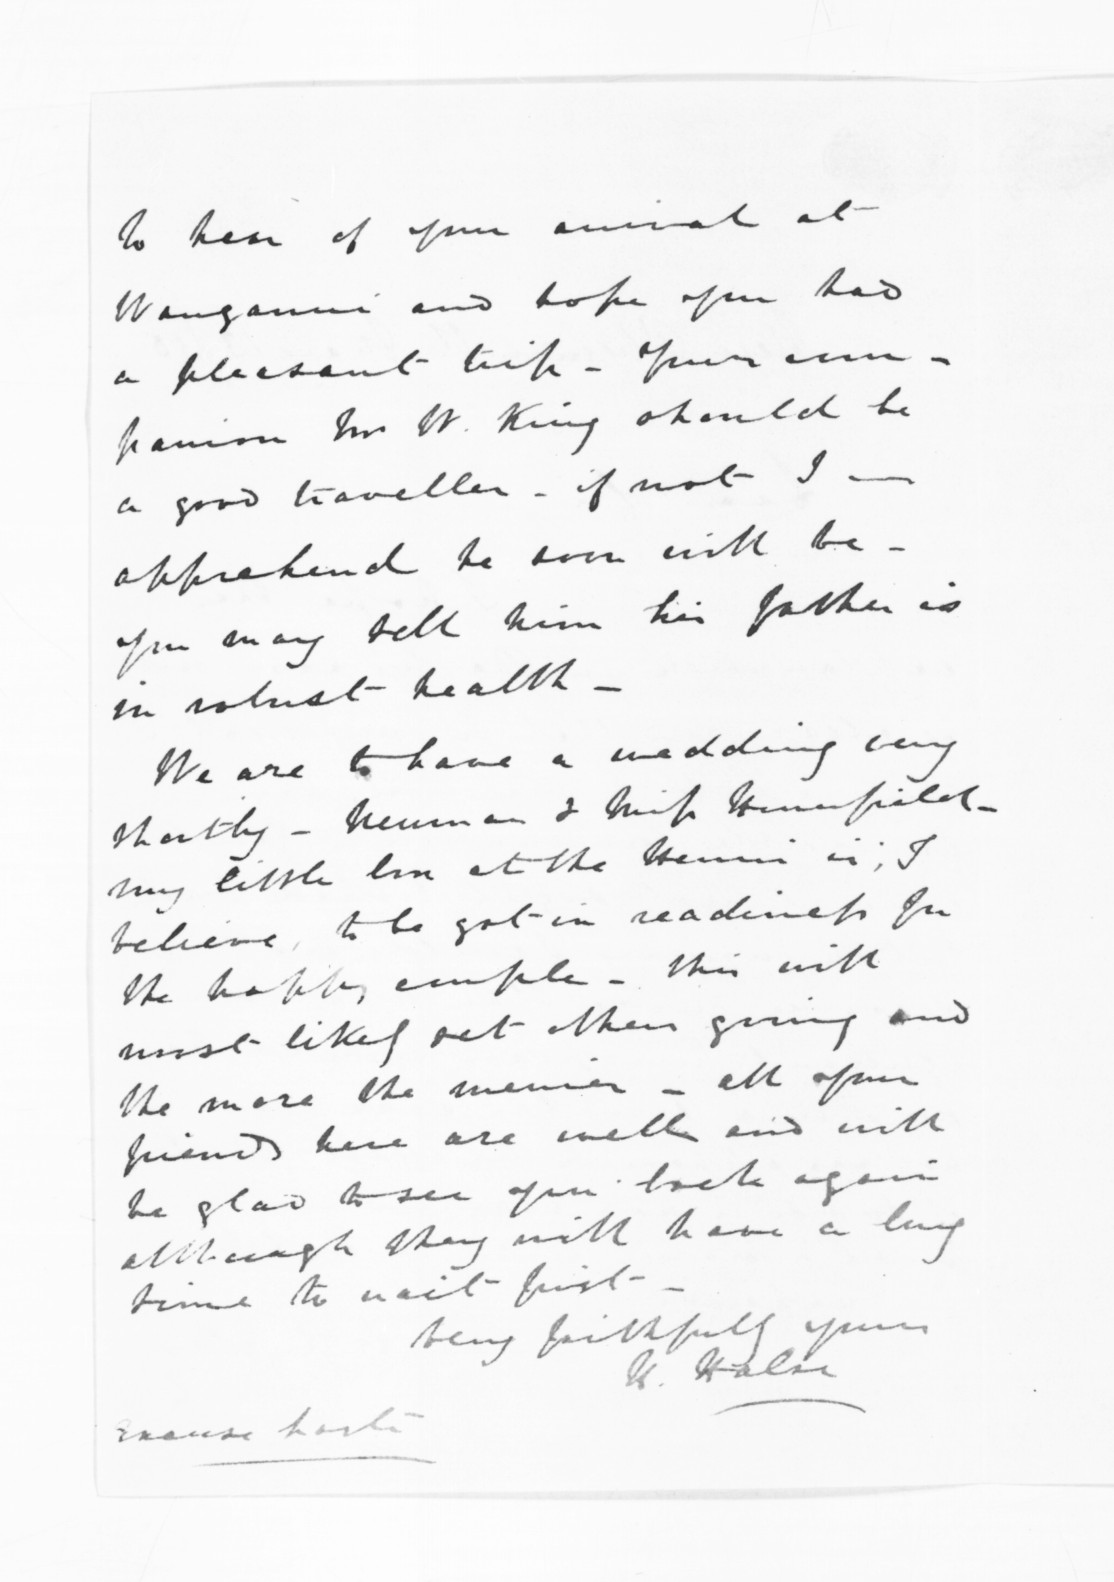 to hear of your arrival at
Wanganui and hope you had
a pleasant trip - Your com-
panion Mr W. King should be
a good traveller - if not I
apprehend he soon will be -
you may tell him his father is
in robust health -
We are to have a wedding very
shortly - Newman & Miss
my little box at the Henui is, I
believe, to be got in readiness for
the happy couple - this will
most likely set others going and
the more the merrier - all your
friends here are well and will
be glad to see you back again
although they will have a long
time to wait first -
Very faithfully yours
H. Halse
Excuse haste